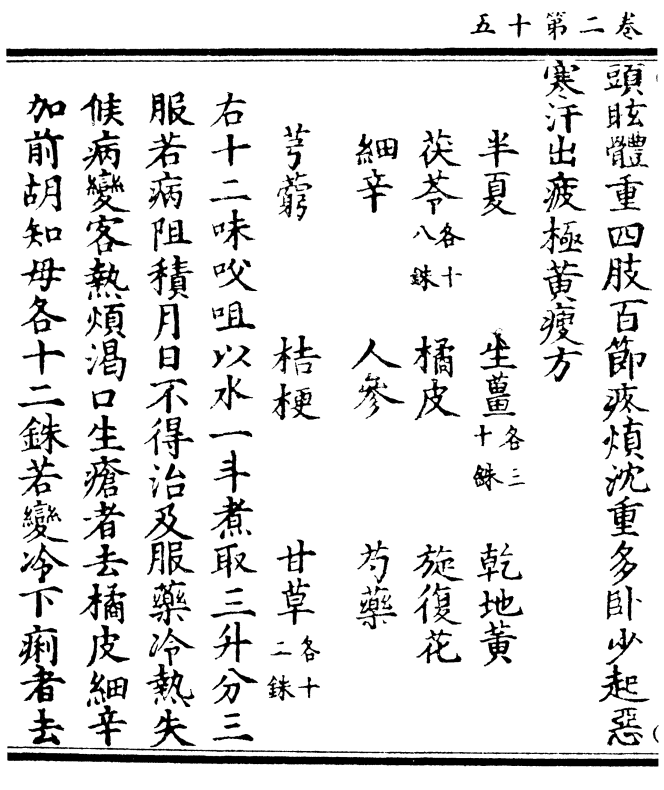 卷二第十五
頭眩體重四肢百節疼煩沈重多卧少起惡
寒汗出疲極黃瘦方
半夏 生薑各三十銖 乾地黃
茯苓各十八銖 橘皮 旋復花
細辛 人參 芍藥
芎藭 桔梗 甘草各十二銖
右十二味㕮咀以水一斗煮取三升分三
服若病阻積月日不得治及服藥冷熱失
候病變客熱煩渴口生瘡者去橘皮細辛
加前胡知母各十二銖若變冷下痢者去